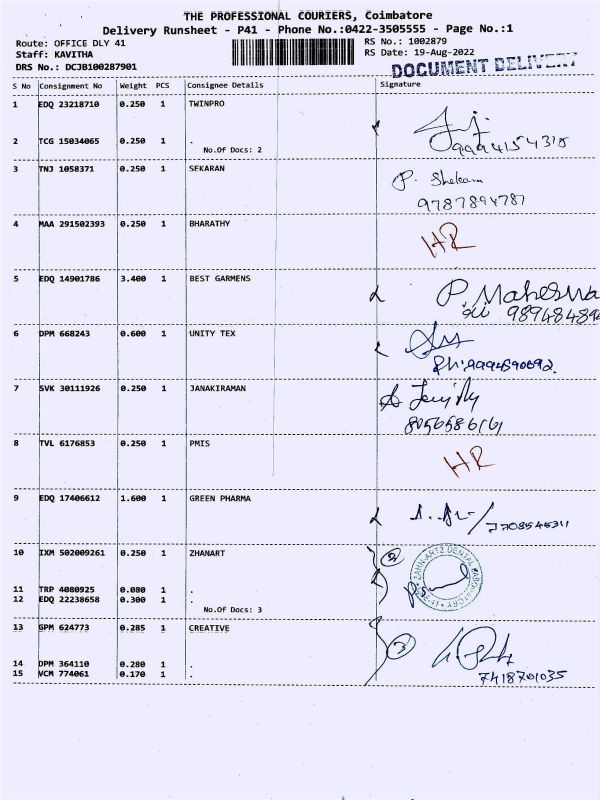 THE PROFESSIONAL COURIERS, Coimbatore
Delivery Runsheet - P41 - Phone No.:0422-3505555 - Page No.:1
Route: OFFICE DLY 41
RS No.: 1002879
Staff: KAVITHA
RS Date: 19-Aug-2022
DRS No.: DCJB100287901
DOCUMENT DELIVERY
S No Consignment No Weight PCS Consignee Details Signature
1 EDQ 23218710 0.250 1 TWINPRO
2 TCG 15034065 0.250 1 .
No.Of Docs: 2
9994154318
3 TNJ 1058371 0.250 1 SEKARAN
P. Shekaran
9787894787
4 MAA 291502393 0.250 1 BHARATHY
HR
5 EDQ 14901786 3.400 1 BEST GARMENS
P. Maheswa
989484894
6 DPM 668243 0.600 1 UNITY TEX
Ph: 9994590692.
7 SVK 30111926 0.250 1 JANAKIRAMAN
8056586161
8 TVL 6176853 0.250 1 PMIS
HR
9 EDQ 17406612 1.600 1 GREEN PHARMA
7708545311
10 IXM 502009261 0.250 1 ZHANART
ZAHN-ARTZ DENTAL LABORATORY
11 TRP 4080925 0.080 1 .
12 EDQ 22238658 0.300 1 .
No.Of Docs: 3
13 GPM 624773 0.285 1 CREATIVE
3
14 DPM 364110 0.280 1 .
15 VCM 774061 0.170 1 .
7418701035